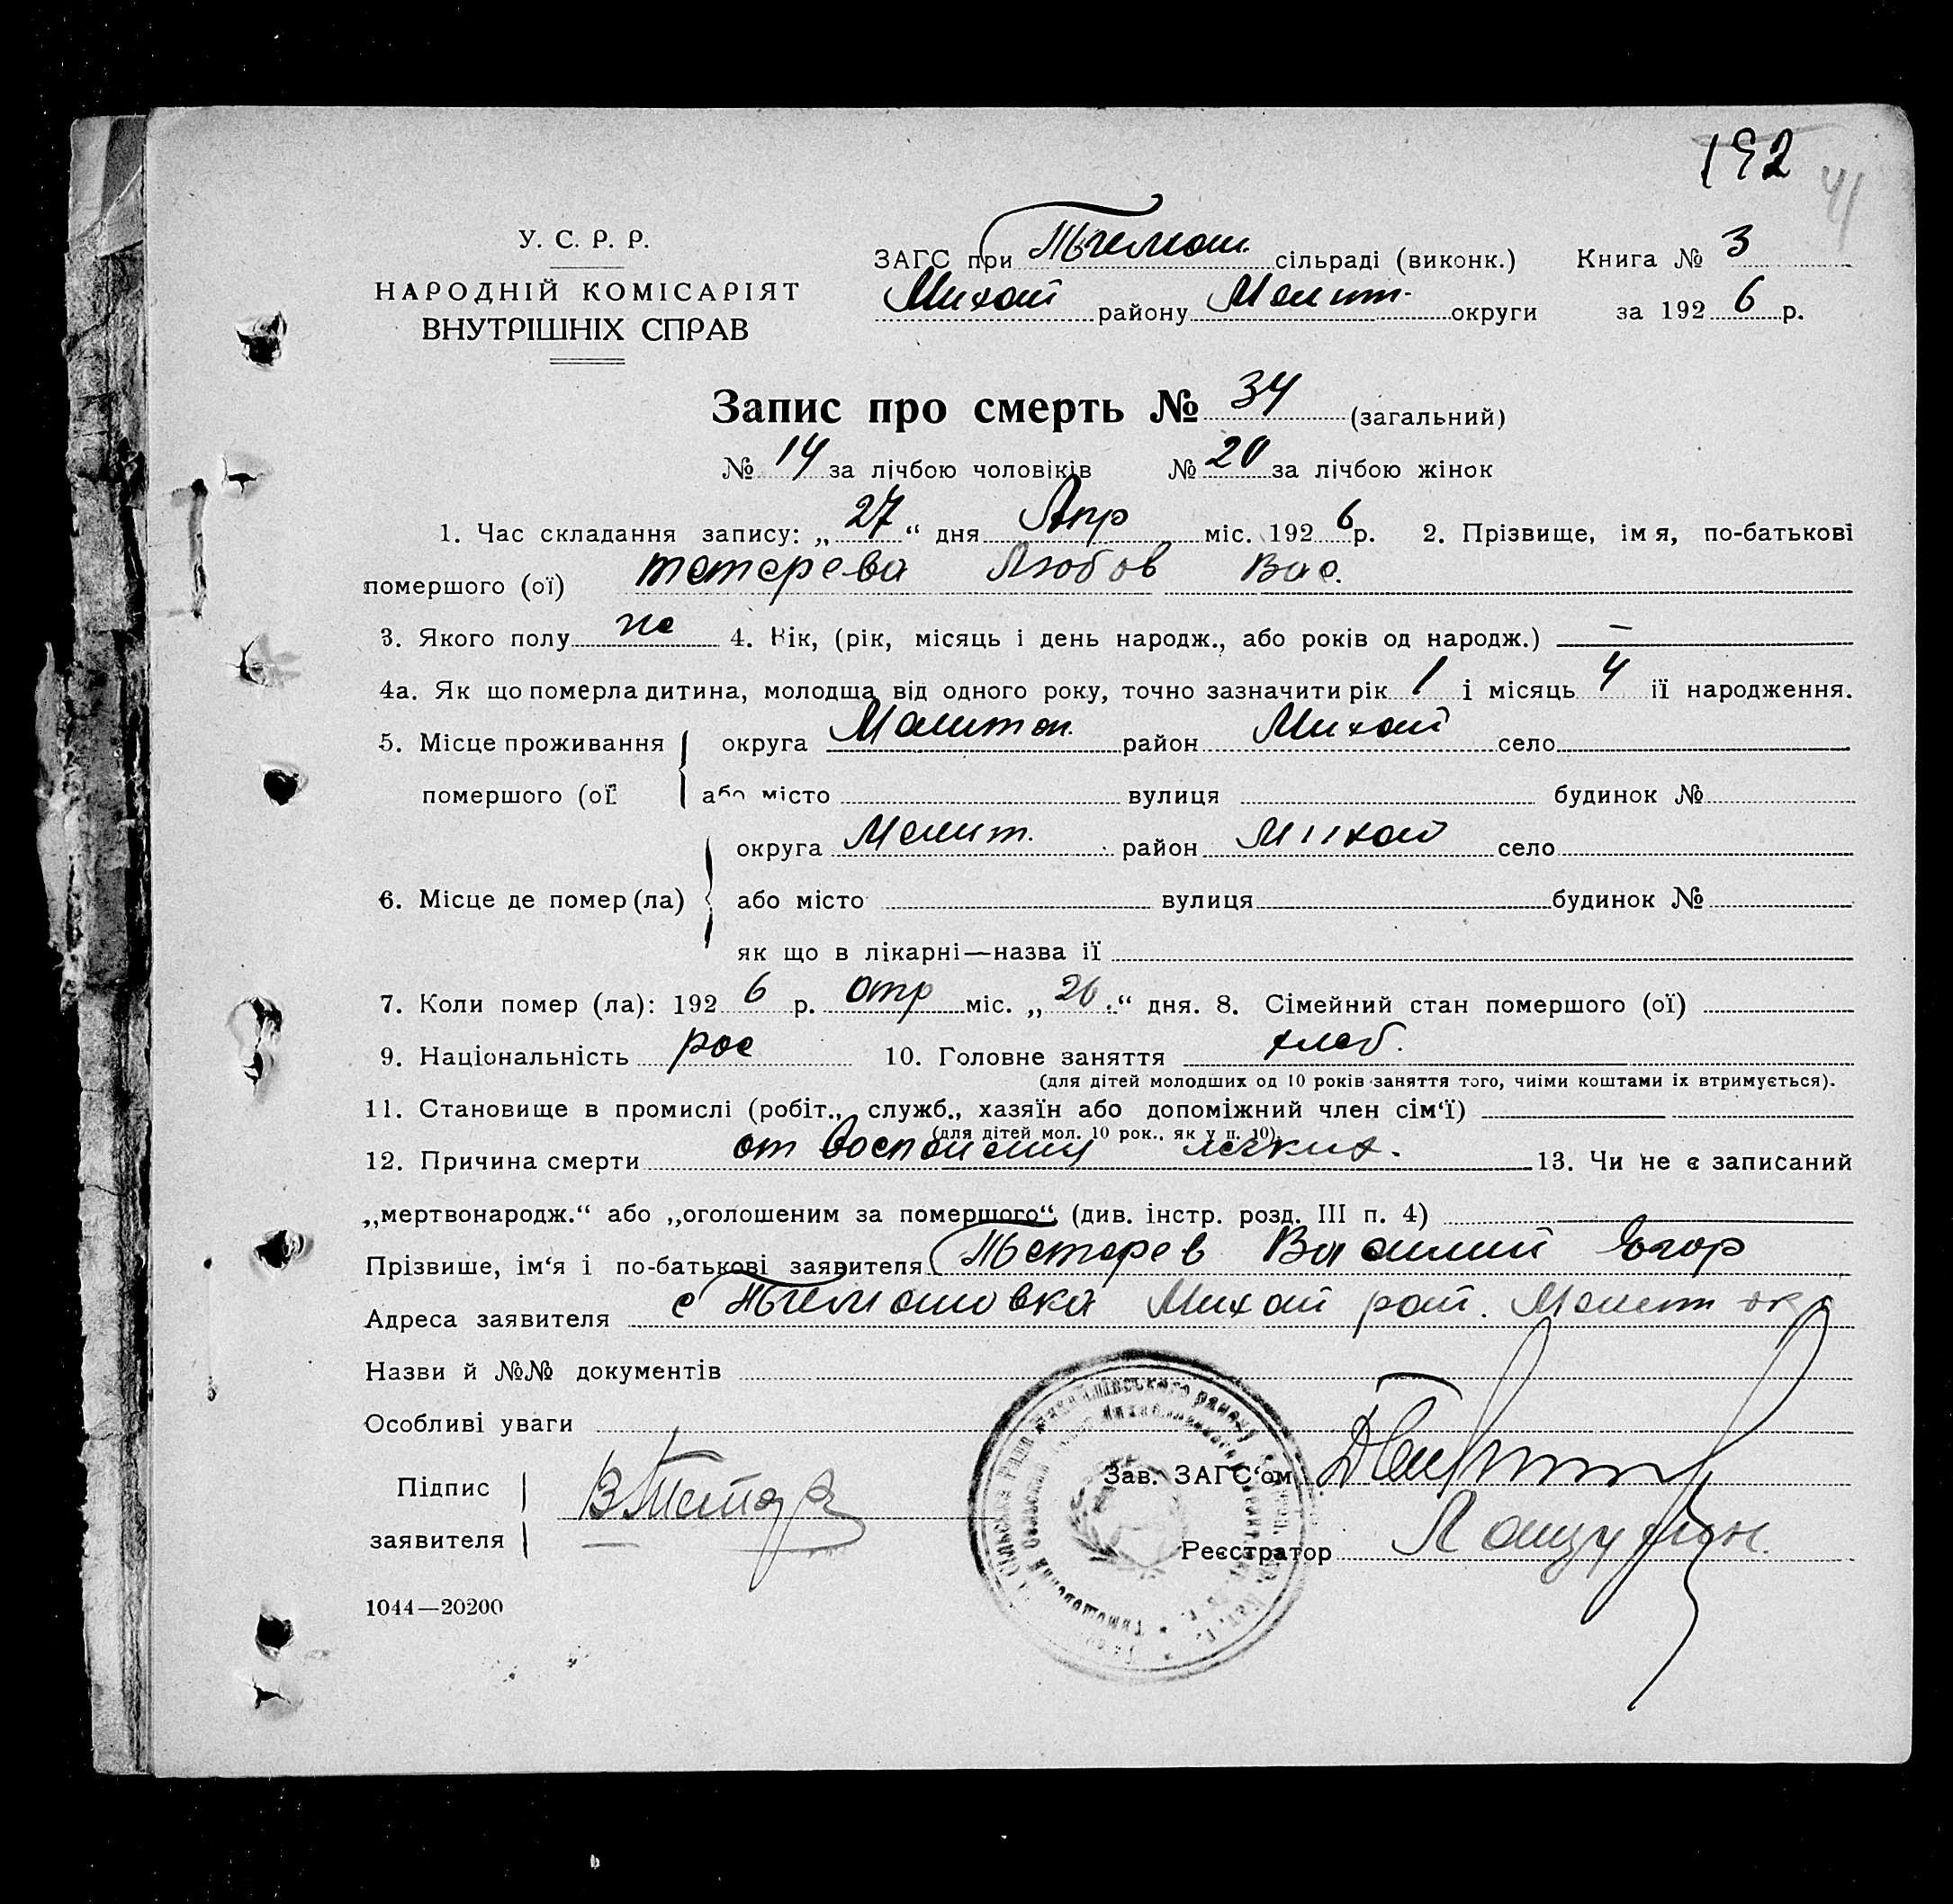 192
41
У. С. Р. Р.
НАРОДНІЙ КОМІСАРІЯТ
ВНУТРІШНІХ СПРАВ
ЗАГС при Тимош. сільраді (виконк.) Книга № 3
Михай району Мелит. округи за 1926 р.
Запис про смерть № 34 (загальний)
№ 14 за лічбою чоловіків № 20 за лічбою жінок
1. Час складання запису: „27“ дня Апр міс. 1926 р. 2. Прізвище, ім я, по-батькові
помершого (ої) Тетерева Любов Вас.
3. Якого полу же 4. Вік, (рік, місяць і день народж., або років од народж.) —
4а. Як що померла дитина, молодща від одного року, точно зазначити рік 1 і місяць 4 її народження.
5. Місце проживання округа Мелитоп. район Михай село
помершого (ої) або місто вулиця будинок №
округа Мелит. район Михай село
6. Місце де помер (ла) або місто вулиця будинок №
як що в лікарні—назва її
7. Коли помер (ла): 1926 р. апр міс. „26.“ дня. 8. Сімейний стан помершого (ої)
9. Національність рос 10. Головне заняття хлеб.
(для дітей молодших од 10 років заняття того, чиїми коштами їх втримується).
11. Становище в промислі (робіт., служб., хазяїн або допоміжний член сім‘ї)
(для дітей мол. 10 рок., як у п. 10).
12. Причина смерти от воспаления легких. 13. Чи не є записаний
„мертвонародж.“ або „оголошеним за помершого“ (див. інстр. розд. III п. 4)
Прізвише, ім‘я і по-батькові заявителя Тетерев Василий Егор
Адреса заявителя с Тимошовка Михай рай. Мелит ок
Назви й №№ документів
Особливі уваги
Підпис
заявителя
Зав. ЗАГС‘ом
Реєстратор
1044—20200